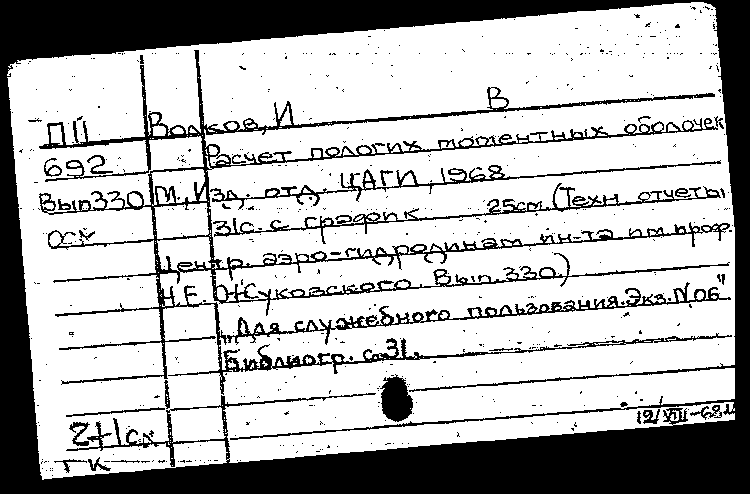 В
ПII Волков, И
692 Расчет пологих моментных оболочек
Вып330 М., Изд. отд. ЦАГИ, 1968
ОСК 31с. с график 25см. (Техн. отчеты
Центр. аэро-гидродинам ин-та им. проф.
Н.Е. Жуковского. Вып. 330)
"Для служебного пользования. Экз. N 06"
Библиогр. с. 31.
12/VIII-68
2+1сх
г к